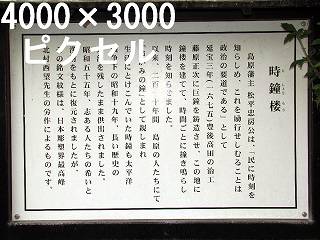 4000×3000
ピクセル
時鐘楼
島原藩主 松平忠房公は、一民に時刻を
知らしめ、これを励行せしむることは
政治の要道である」として
延宝三年(一六七五)豊後高田の治工
藤原正次に巨鐘を鋳造させ、この地に
鐘楼を建てて、時間ごとに鐘を鳴らし
時刻を知らせました。
以来、二百七十年間、島原の人たちにて
「お上の鐘」として親しまれ
生活にとけこんでいた時鐘も太平洋
戦争下の昭和十九年、長い歴史の
を残したまま供出されました。
昭和五十五年、志ある人たちの希いと
をもとに復元されましたが、
の銘文紋様は、日本彫塑界最高峰
北村西望先生の労作によるものです。